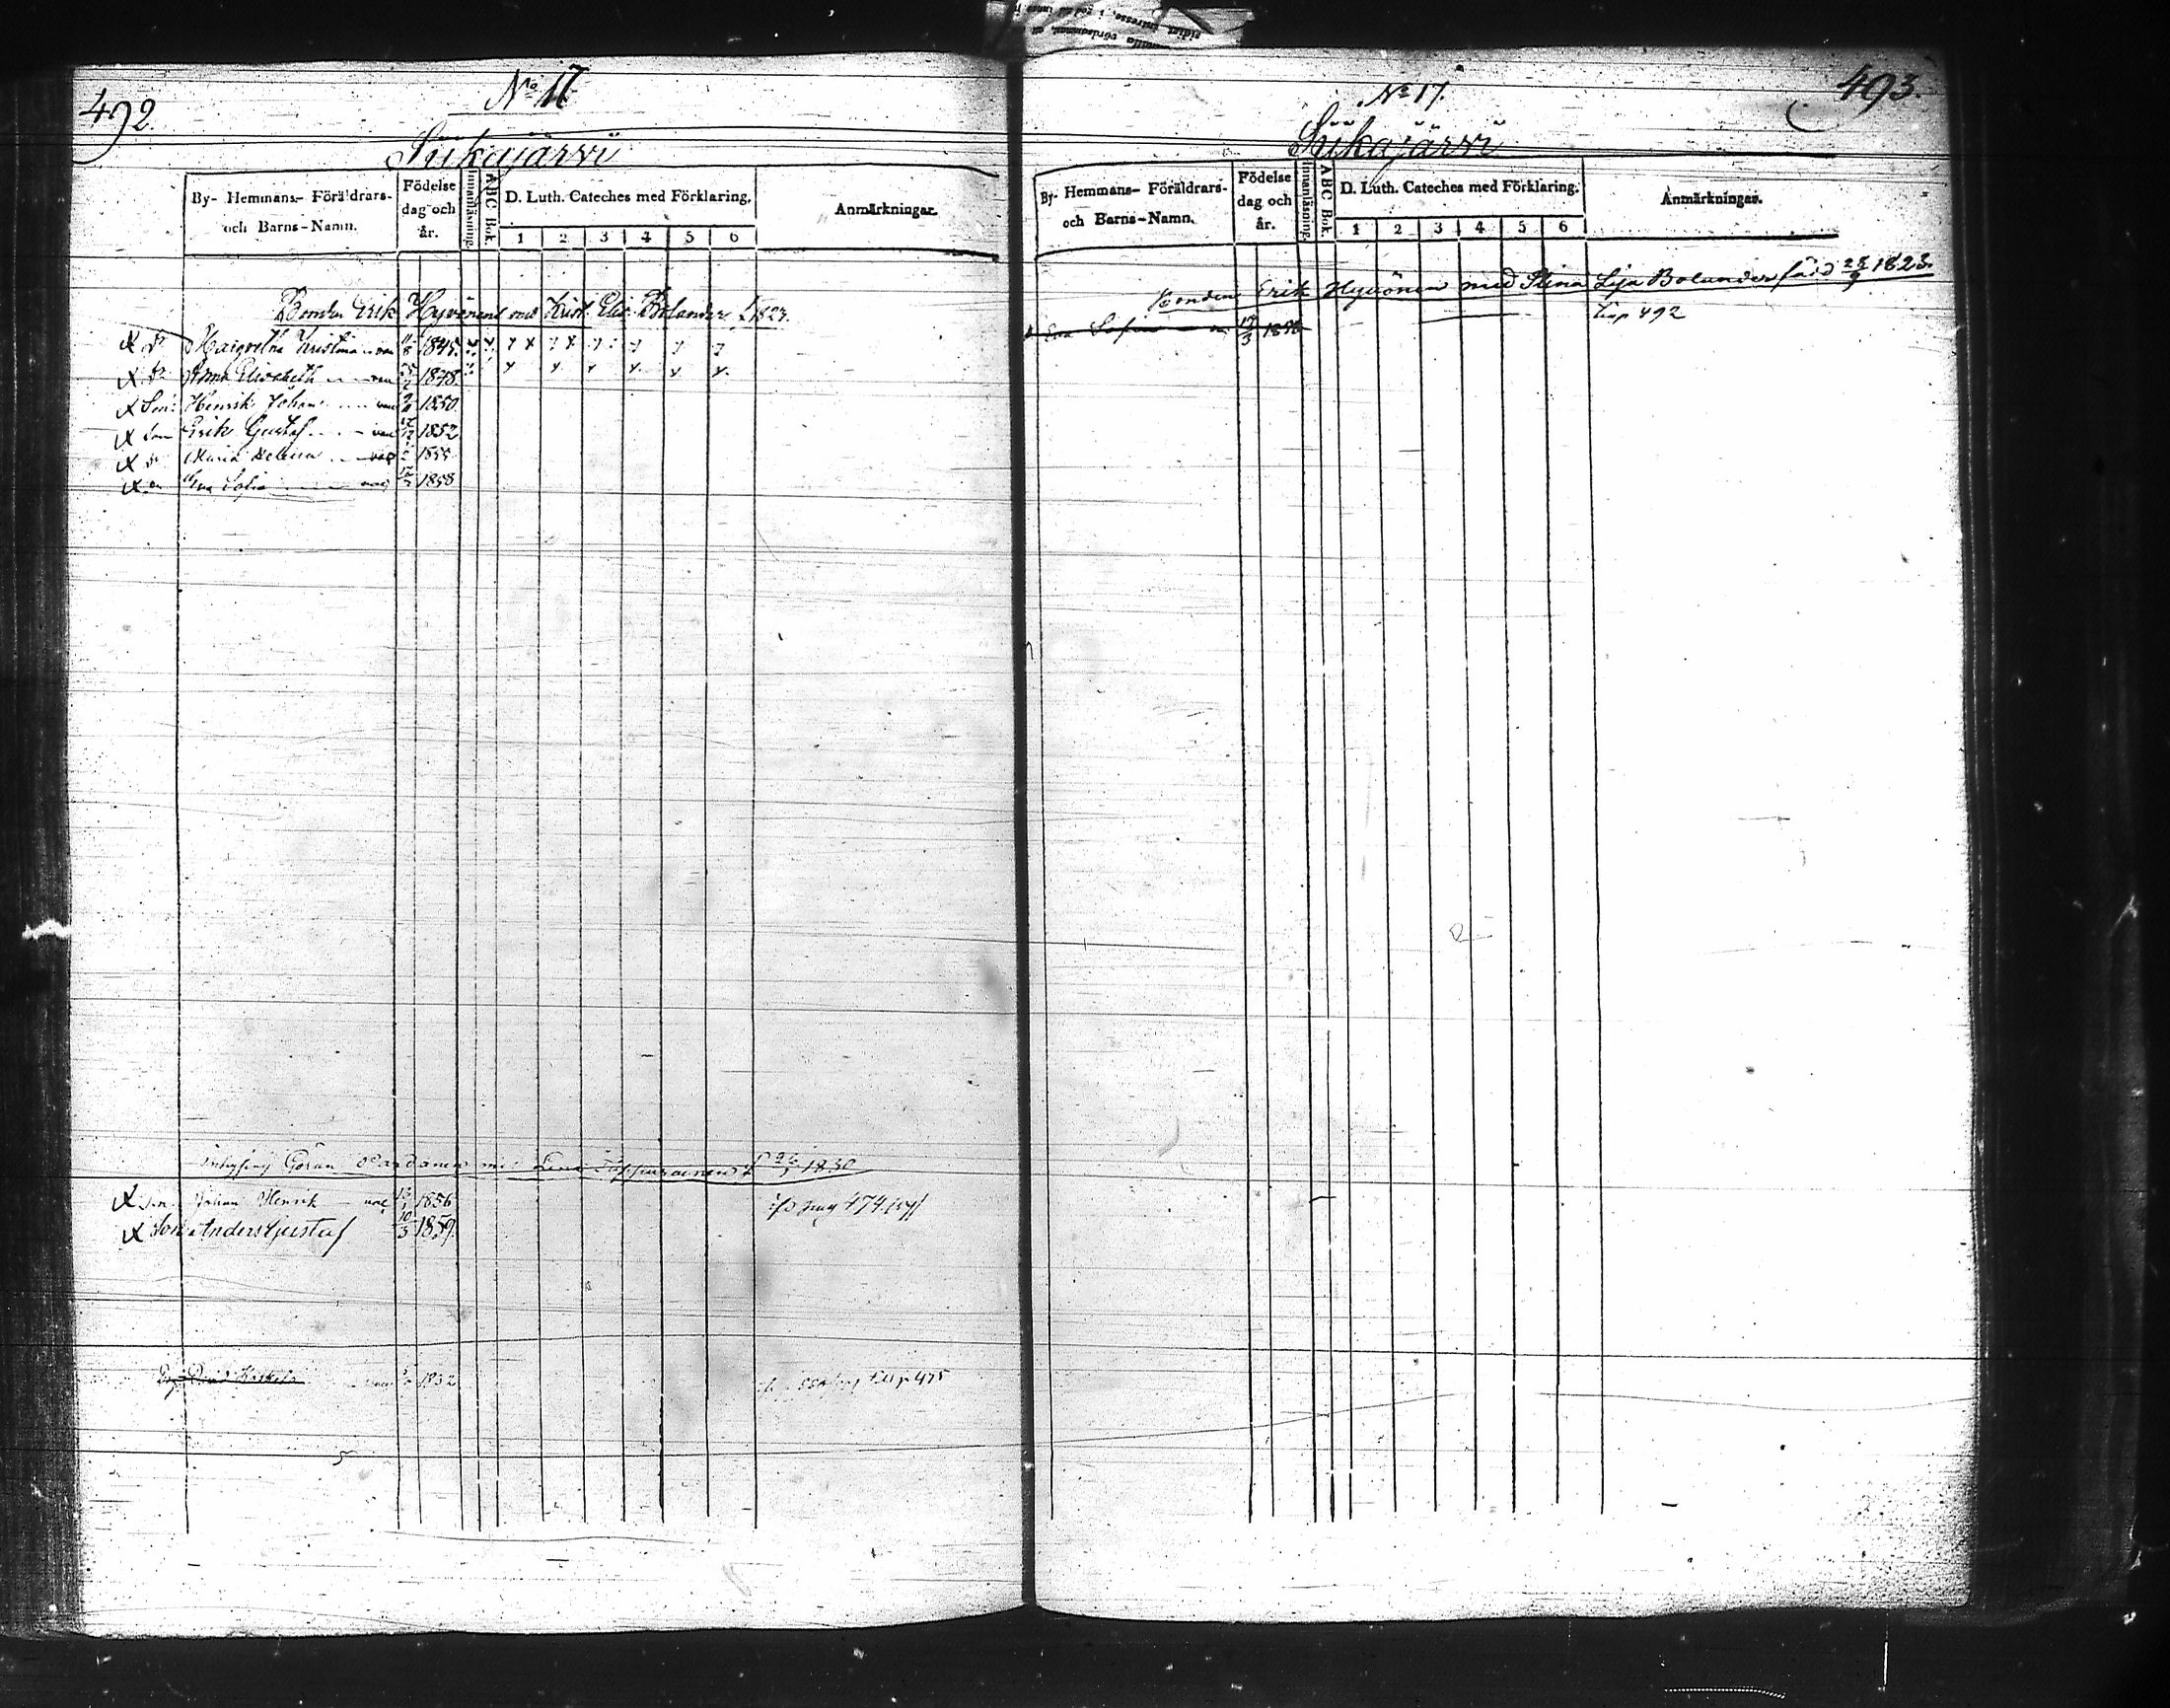 492
No 17
Siikajärvi
By- Hemmans- Föräldrars- och Barns-Namn.
Födelse dag och år.
Innanläsning.
ABC Bok.
D. Luth. Cateches med Förklaring.
1 2 3 4 5 6
Anmärkningar.
Bonden Erik Hyvönens med Krist. Elis. Bolander f. 1823.
dr Margretha Kristina 1845
dr Anna Elisabeth 1848
Son Henrik Johan 1850
Son Erik Gustaf 1852
dr Maria 1855
dr Eva Sofia 1858
Inhysing Göran 1830
Son Johan Henrik 12/1 1856
474
Son Anders Gustaf 10/3 1859.
1832
475
493.
No 17.
Siikajärvi
By- Hemmans- Föräldrars- och Barns-Namn.
Födelse dag och år.
Innanläsning.
ABC Bok.
D. Luth. Cateches med Förklaring.
1 2 3 4 5 6
Anmärkningar.
Bonden Erik Hyvönen med Stina Lisa Bolander född 28/9 1823.
492
Eva Sofia 1858